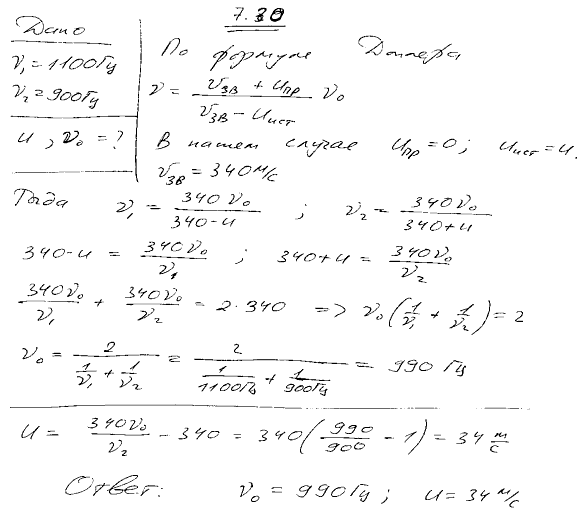 7.30
Дано
ν₁ = 1100 Гц
ν₂ = 900 Гц
u, ν₀ = ?
По формуле Доплера
ν = (v_зв + u_пр)/(v_зв − u_ист) ν₀
В нашем случае u_пр = 0; u_ист = u.
v_зв = 340 м/с
Тогда ν₁ = 340ν₀/(340 − u) ; ν₂ = 340ν₀/(340 + u)
340 − u = 340ν₀/ν₁ ; 340 + u = 340ν₀/ν₂
340ν₀/ν₁ + 340ν₀/ν₂ = 2·340 => ν₀(1/ν₁ + 1/ν₂) = 2
ν₀ = 2/(1/ν₁ + 1/ν₂) = 2/(1/1100Гц + 1/900Гц) = 990 Гц
u = 340ν₀/ν₂ − 340 = 340(990/900 − 1) = 34 м/с
Ответ: ν₀ = 990 Гц ; u = 34 м/с